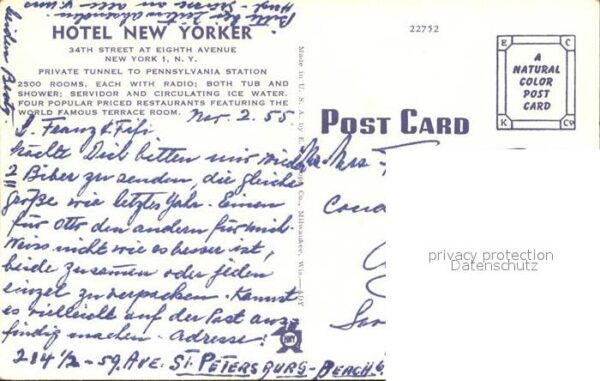 HOTEL NEW YORKER
34TH STREET AT EIGHTH AVENUE
NEW YORK 1, N. Y.
PRIVATE TUNNEL TO PENNSYLVANIA STATION
2500 ROOMS, EACH WITH RADIO; BOTH TUB AND
SHOWER; SERVIDOR AND CIRCULATING ICE WATER.
FOUR POPULAR PRICED RESTAURANTS FEATURING THE
WORLD FAMOUS TERRACE ROOM.
Nov. 2. 55
Franz & Fifi
Möchte Dich bitten mir wieder
2 Biber zu senden, die gleiche
größe wie letztes Jahr. Einen
für Otto den andern für mich.
Weiss nicht wie es besser ist,
beide zusammen oder jeden
einzel zu verpacken. Kannst
es vielleicht auf der Post aus-
findig machen. Adresse:
214 1/2 - 59. AVE. ST. PETERSBURG-BEACH
Made in U. S. A. by E. C. Co., Milwaukee, Wis.
22752
POST CARD
A
NATURAL
COLOR
POST
CARD
E C
K Co
Mrs
privacy protection
Datenschutz